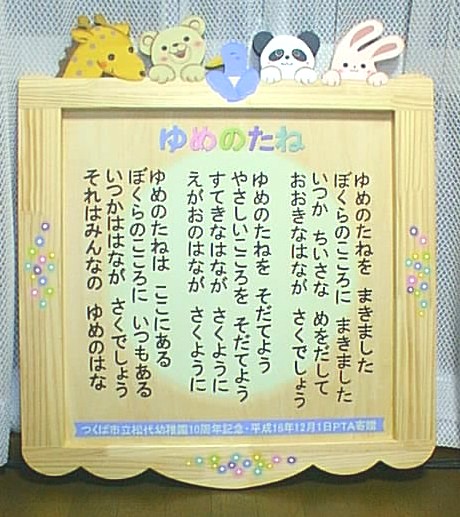 ゆめのたね
ゆめのたねを まきました
ぼくらのこころに まきました
いつか ちいさな めをだして
おおきなはなが さくでしょう
ゆめのたねを そだてよう
やさしいこころを そだてよう
すてきなはなが さくように
えがおのはなが さくように
ゆめのたねは ここにある
ぼくらのこころに いつもある
いつかははなが さくでしょう
それはみんなの ゆめのはな
つくば市立松代幼稚園10周年記念・平成16年12月1日PTA寄贈